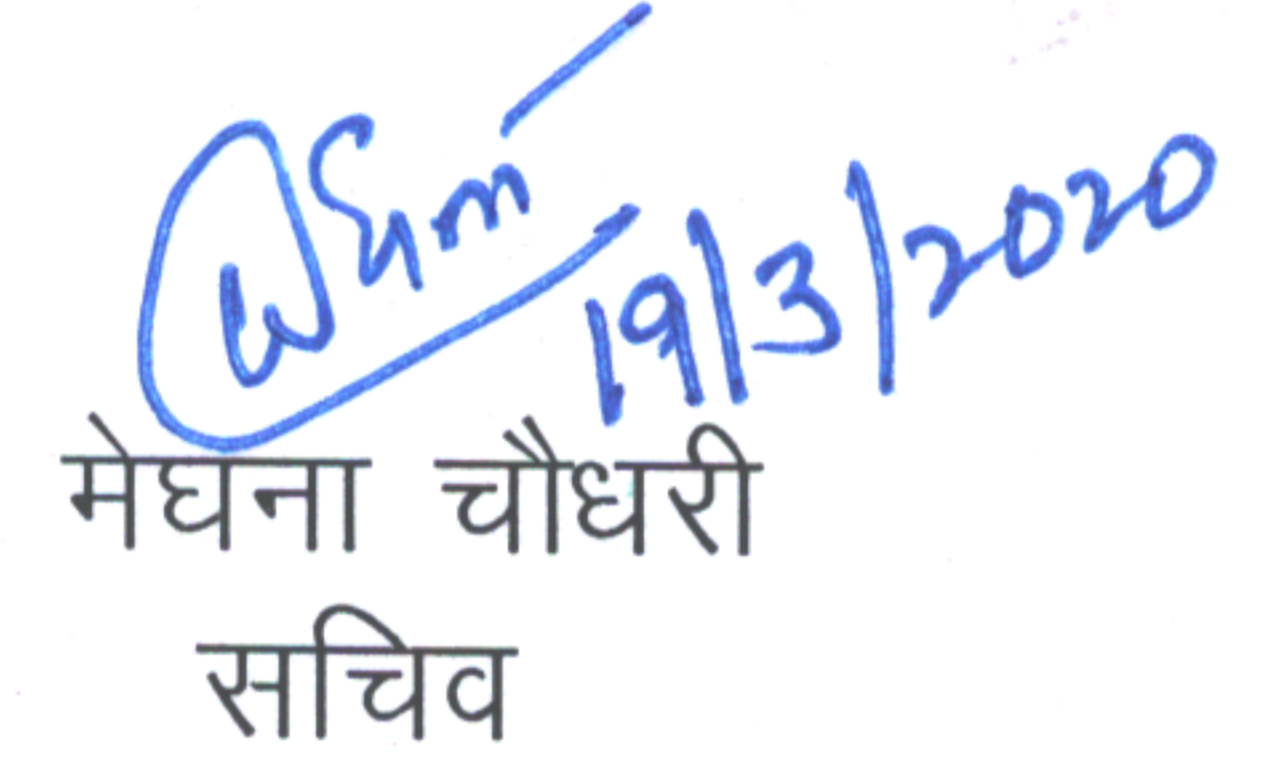 19/3/2020
मेघना चौधरी
सचिव